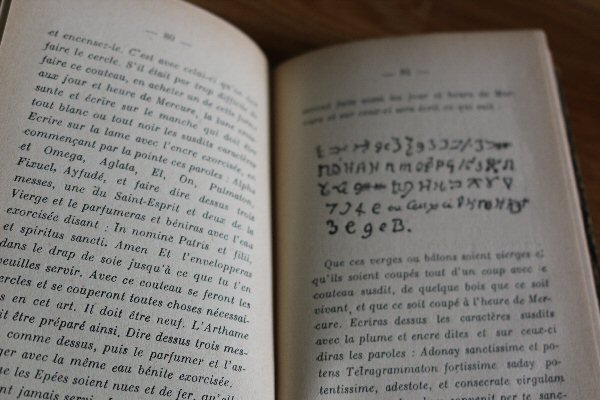 — 80 —
et encensez-le. C'est avec celui-ci qu'on
faire le cercle. S'il était par trop difficile de
faire ce couteau, en acheter un de cette forme
aux jour et heure de Mercure, la lune crois-
sante et écrire sur le manche qui doit être
tout blanc ou tout noir les susdits caractères
Ecrire sur la lame avec l'encre exorcisée, en
commençant par la pointe ces paroles : Alpha
et Omega, Aglala, El, On, Pulmaton,
Fizucl, Ayfudé, et faire dire dessus trois
messes, une du Saint-Esprit et deux de la
Vierge et le parfumeras et béniras avec l'eau
exorcisée disant : In nominé Patris et filii,
et spiritus sancti. Amen Et l'envelopperas
dans le drap de soie jusqu'à ce que tu t'en
veuilles servir. Avec ce couteau se feront les
cercles et se couperont toutes choses nécessai-
s en cet art. Il doit être neuf. L'Arthame
it être préparé ainsi. Dire dessus trois mes-
comme dessus, puis le parfumer et l'as-
ger avec la même eau bénite exorcisée.
te les Epées soient nues et de fer, qu'el
jamais servir
— 81 —
soient faits aussi les jour et heure de Mer-
cure et sur ceux-ci sera écrit ce qui suit :
3 e g e B.
Que ces verges ou bâtons soient vierges et
qu'ils soient coupés tout d'un coup avec le
couteau susdit, de quelque bois que ce soit
vivant, et que ce soit coupé à l'heure de Mer-
cure. Ecriras dessus les caractères susdits
avec la plume et encre dites et sur ceux-ci
diras les paroles : Adonay sanctissime et po-
tens Telragrammaton fortissime saday po-
tentissime, adestote, et consecrate virgulam
convenit per te sanc-